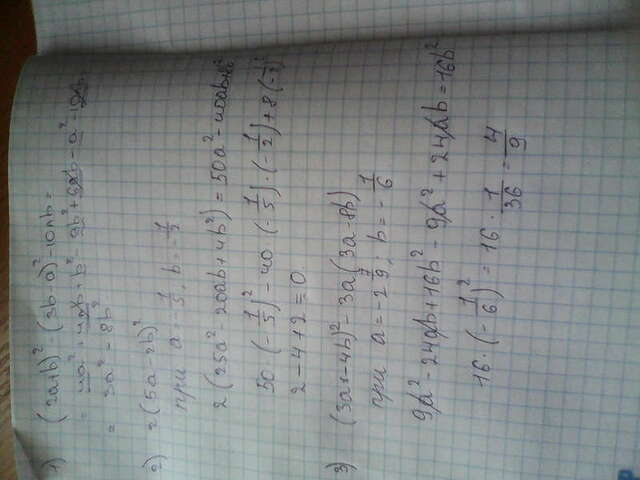 1) (2a+b)² - (3b-a)² - 10ab =
= 4a² + 4ab + b² - 9b² + 6ab - a² - 10ab
= 3a² - 8b²
2) 2(5a-2b)²
при a = -1/5, b = -1/2
2(25a² - 20ab + 4b²) = 50a² - 40ab + 8b²
50·(-1/5)² - 40·(-1/5)·(-1/2) + 8(-1/2)²
2 - 4 + 2 = 0.
3) (3a-4b)² - 3a(3a-8b)
при a = -2 7/9; b = -1/6
9a² - 24ab + 16b² - 9a² + 24ab = 16b²
16·(-1/6)² = 16·1/36 = 4/9